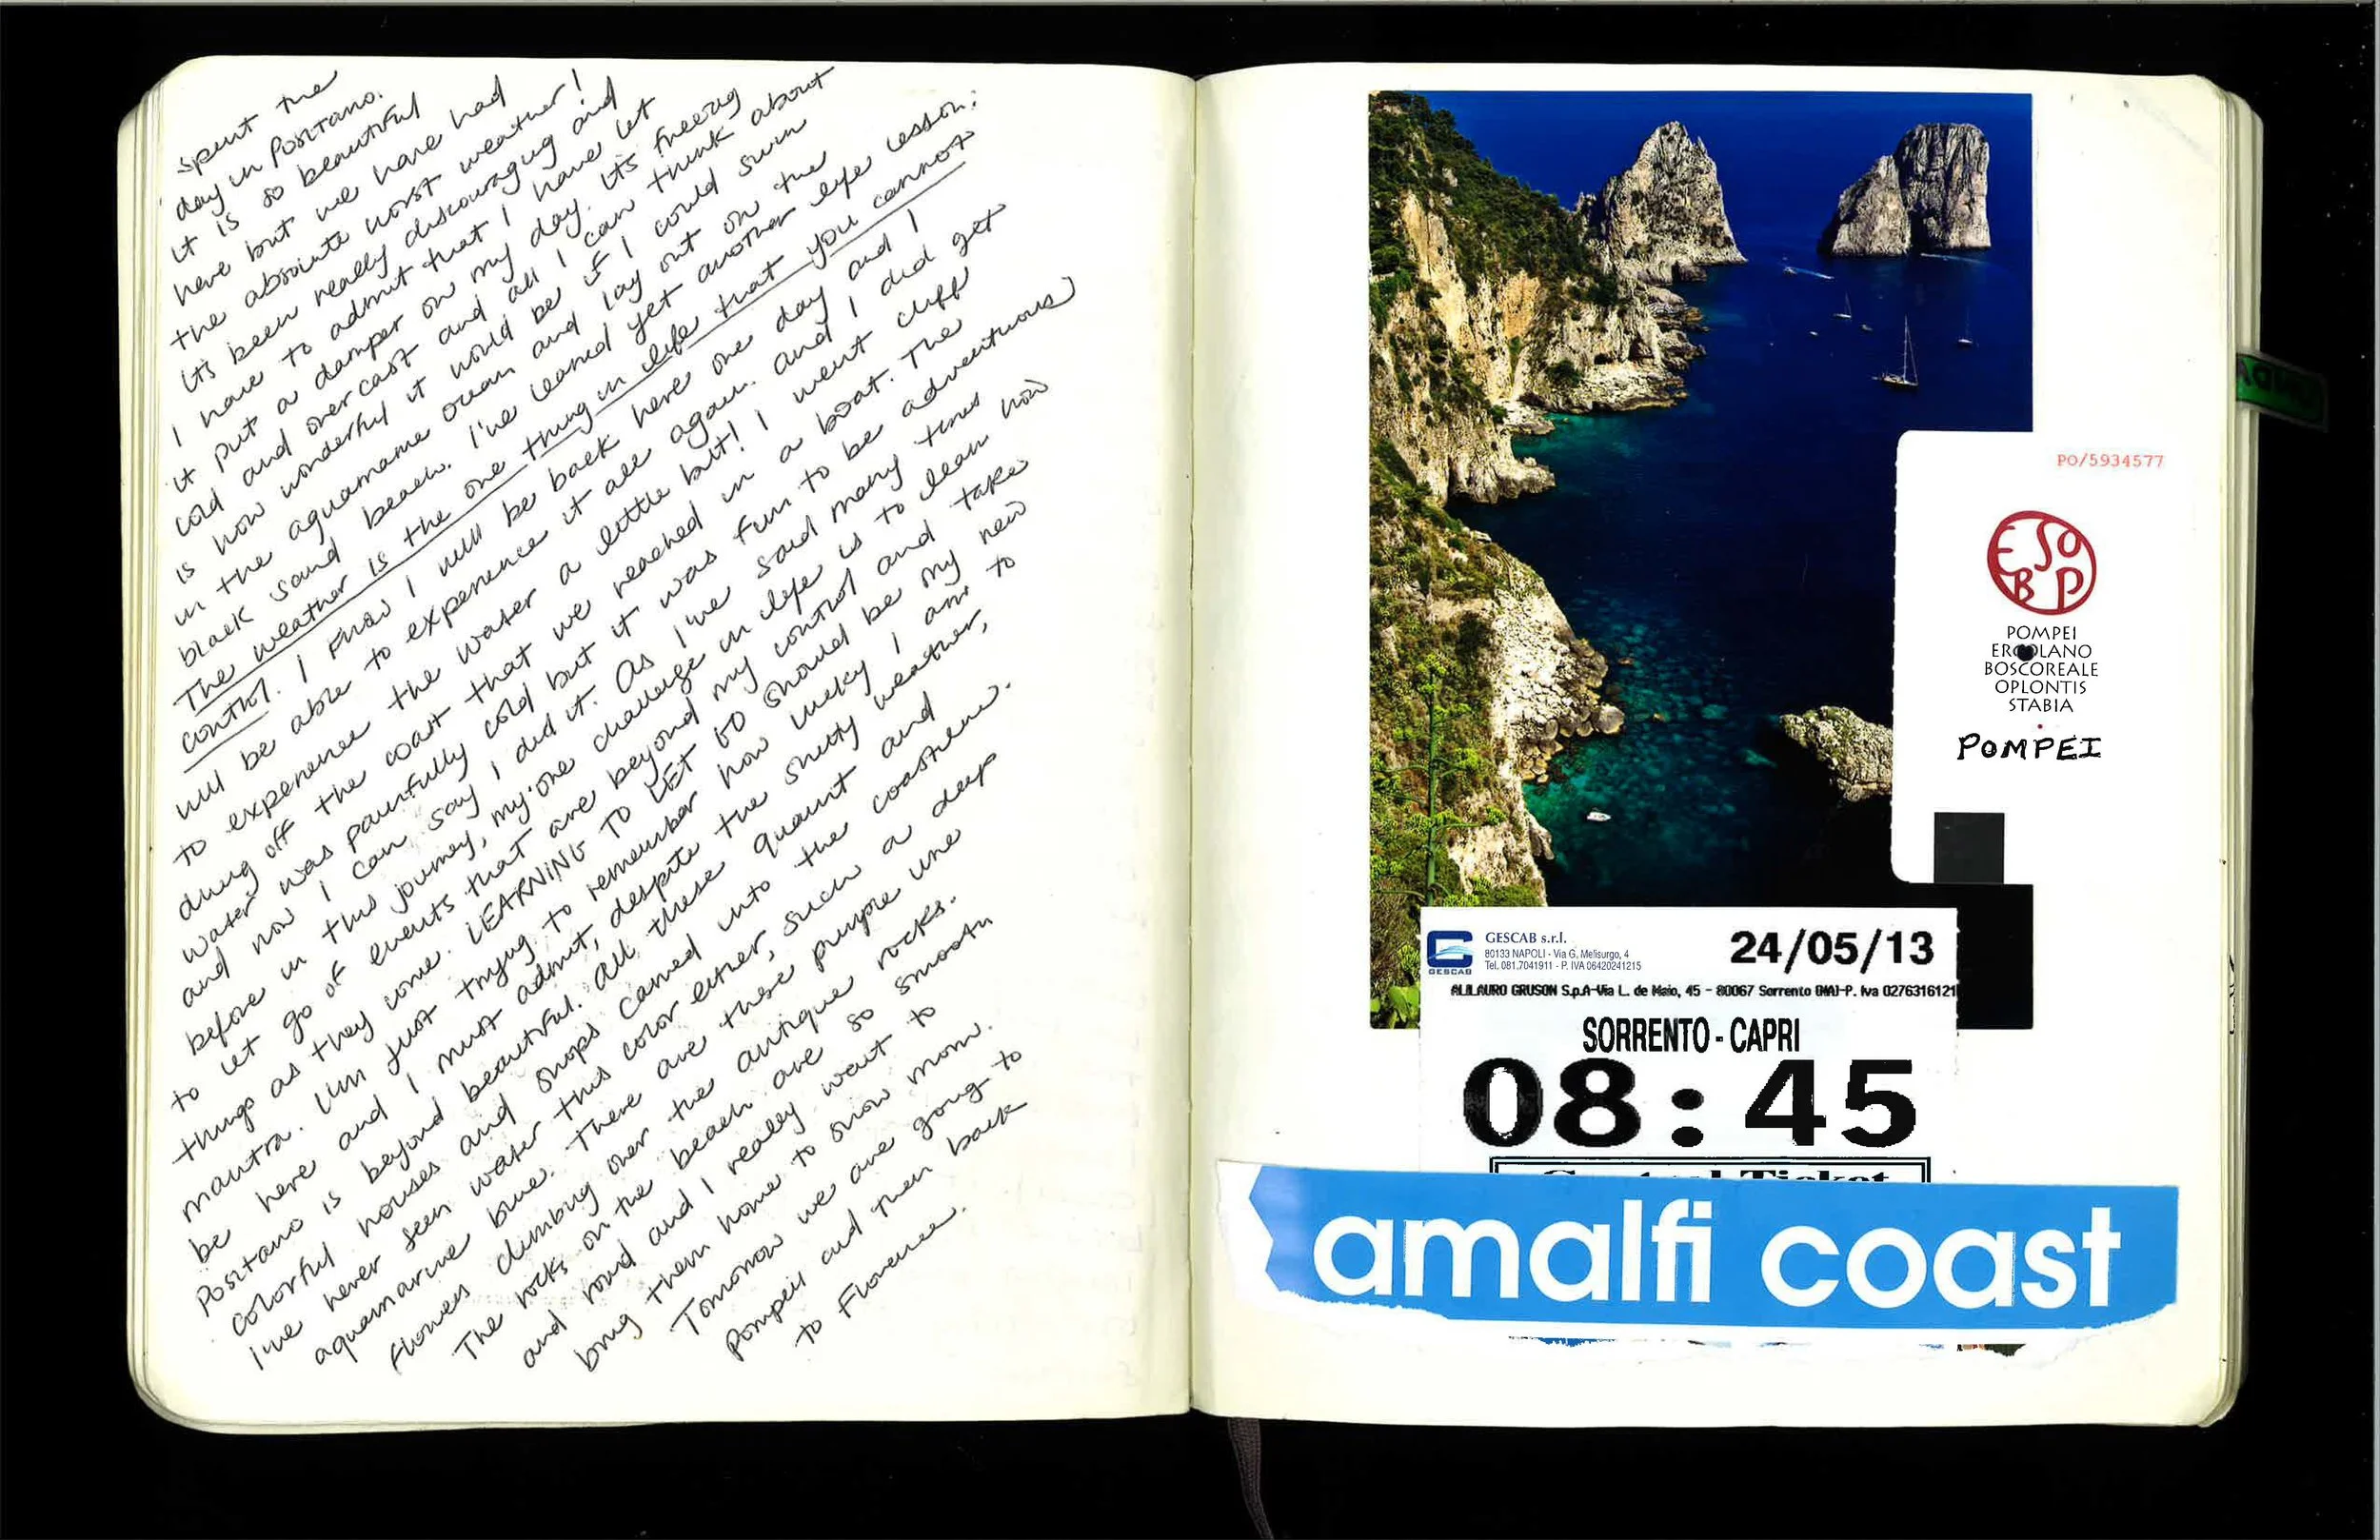 spent the
day in Positano.
It is so beautiful
here but we have had
the absolute worst weather!
Its been really discouraging and
I have to admit that I have let
it put a damper on my day. Its freezing
cold and overcast and all I can think about
is how wonderful it would be if I could swim
in the aquamarine ocean and lay out on the
black sand beach. I've learned yet another life lesson:
The weather is the one thing in life that you cannot
control. I know I will be back here one day and I
will be able to experience it all again. And I did get
to experience the water a little bit! I went cliff
diving off the coast that we reached in a boat. The
water was painfully cold but it was fun to be adventurous
and now I can say I did it. As I've said many times
before in this journey, my one challenge in life is to learn how
to let go of events that are beyond my control and take
things as they come. LEARNING TO LET GO should be my new
mantra. Im just trying to remember how lucky I am to
be here and I must admit, despite the shitty weather,
Positano is beyond beautiful. All these quaint and
colorful houses and shops carved into the coastline.
I've never seen water this color either, such a deep
aquamarine blue. There are these purple vine
flowers climbing over the antique rocks.
The rocks on the beach are so smooth
and round and I really want to
bring them home to show mom.
Tomorrow we are going to
Pompeii and then back
to Florence.
PO/5934577
ESOBP
POMPEI
ERCOLANO
BOSCOREALE
OPLONTIS
STABIA
POMPEI
GESCAB
GESCAB s.r.l.
80133 NAPOLI - Via G. Melisurgo, 4
Tel. 081.7041911 - P. IVA 06420241215
24/05/13
ALILAURO GRUSON S.p.A-Via L. de Maio, 45 - 80067 Sorrento (NA)-P. Iva 0276316121
SORRENTO - CAPRI
08:45
Ticket
amalfi coast